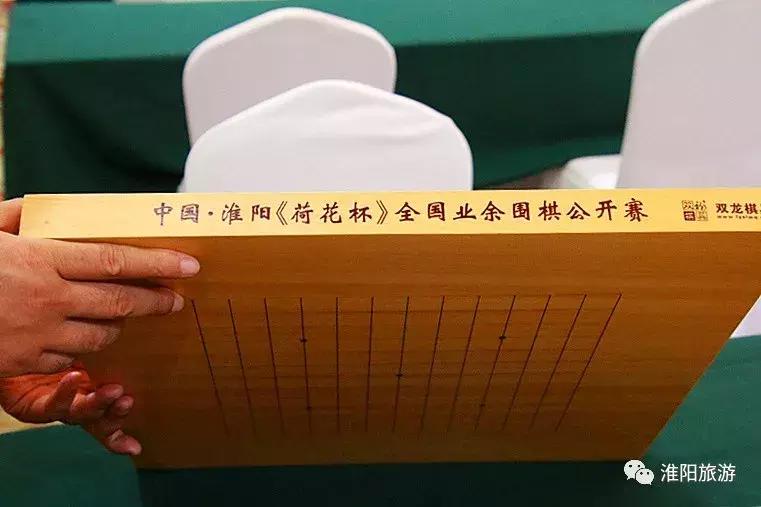 中国·淮阳《荷花杯》全国业余围棋公开赛
双龙棋
淮阳旅游